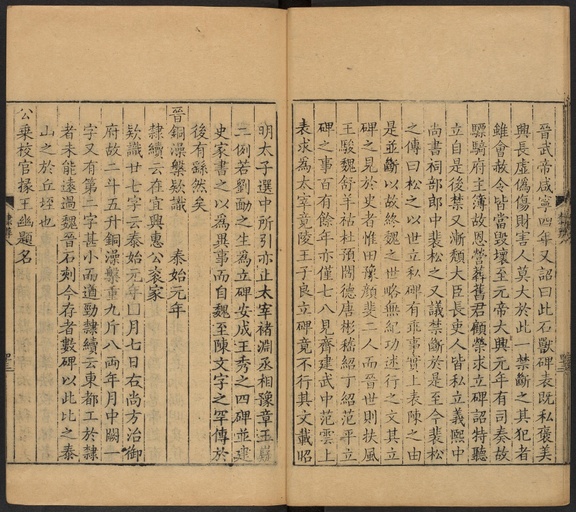 晉武帝咸寧四年又詔曰此石獸碑表既私褒美
興長虛偽傷財害人莫大於此一禁斷之其犯者
雖會赦令皆當毀壞至元帝大興元年有司奏故
驃騎府主簿故恩營葬舊君顧榮求立碑詔特聽
立自是後禁又漸頹大臣長吏人皆私立義熙中
尚書祠部郎中裴松之又議禁斷於是至今裴松
之傳曰松之以世立私碑有乖事實上表陳之由
是並斷以故終魏之世略無紀功述行之文其立
碑之見於史者惟田豫顏斐二人而晉世則扶風
王駿魏舒羊祜杜預閻德唐彬嵇紹丁紹范平立
碑之事百有餘年亦僅七八見齊建武中范雲上
表求為太宰竟陵王子良立碑竟不行其文載昭
明太子選中所引亦止太宰褚淵丞相豫章王嶷
二例若劉勔之生為立碑安成王秀之四碑並建
史家書之以為異事而自魏至陳文字之罕傳於
後有繇然矣
晉銅澡槃欵識 泰始元年
隸續云在宜興惠公袞家
欵識廿七字云泰始元年 月七日右尚方治御
府故二斗五升銅澡槃重九斤八兩年月中闕一
字又有第二字甚小而遒勁隸續云東都工於隸
者未能遠過魏晉石刻今存者數碑以此比之泰
山之於丘垤也
公乘校官掾王幽題名